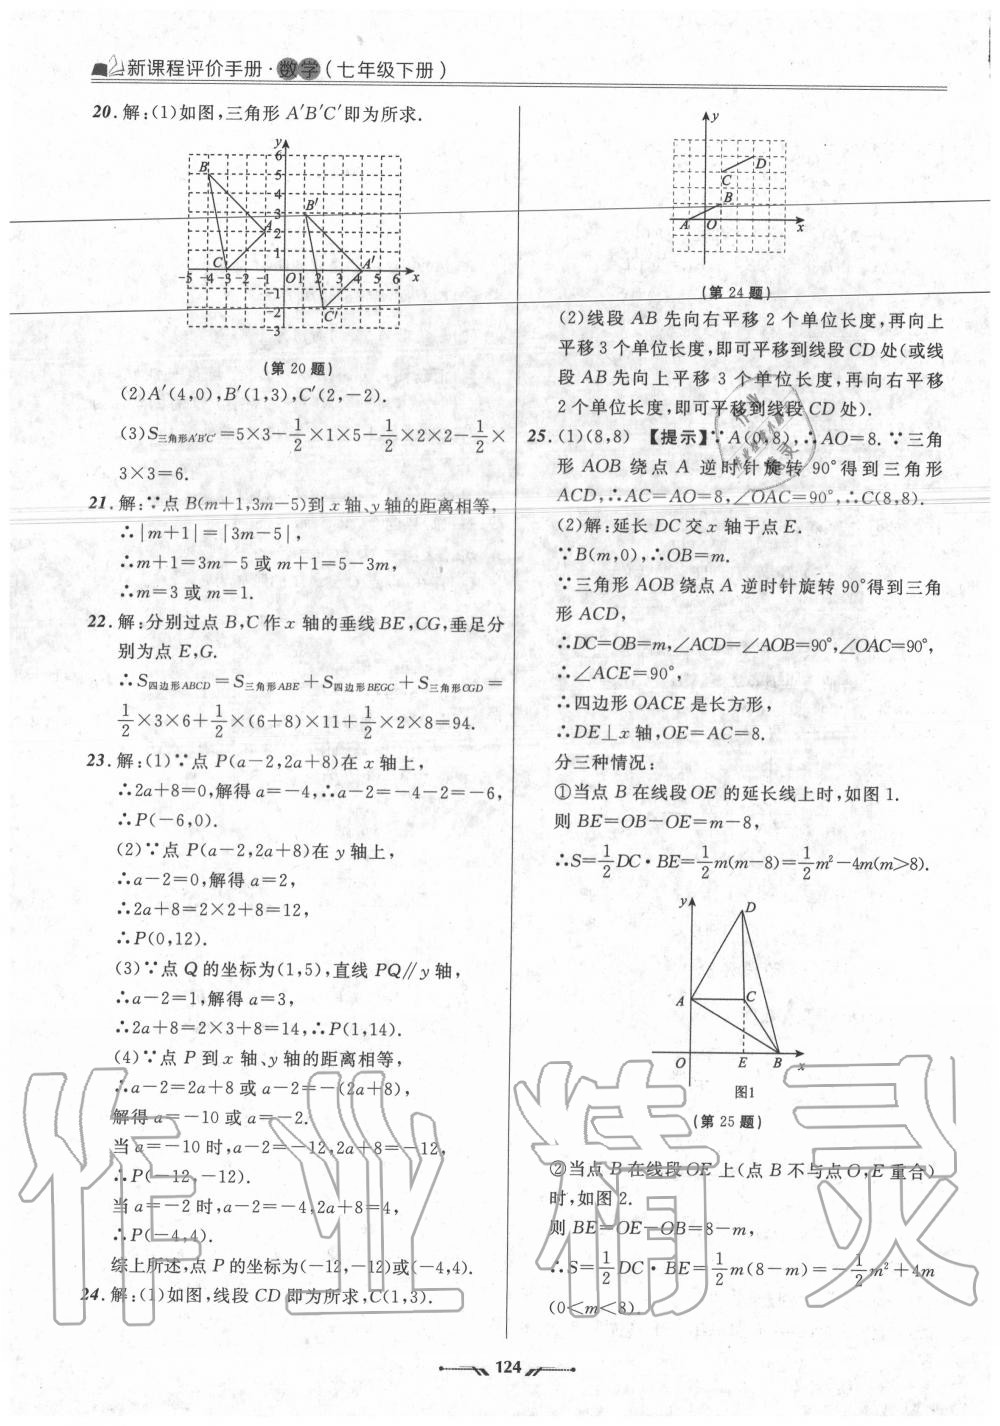 新课程评价手册·数学(七年级下册)
20.解:(1)如图,三角形 A′B′C′即为所求.
y
6
5
4
3
2
1
B
B′
A
C
A′
C′
-5 -4 -3 -2 -1 O 1 2 3 4 5 6 x
-1
-2
-3
(第 20 题)
(2)A′(4,0),B′(1,3),C′(2,-2).
(3)S三角形A′B′C′=5×3-1/2×1×5-1/2×2×2-1/2×
3×3=6.
21.解:∵点 B(m+1,3m-5)到 x 轴、y 轴的距离相等,
∴|m+1|=|3m-5|,
∴m+1=3m-5 或 m+1=5-3m,
∴m=3 或 m=1.
22.解:分别过点 B,C 作 x 轴的垂线 BE,CG,垂足分
别为点 E,G.
∴S四边形ABCD=S三角形ABE+S四边形BEGC+S三角形CGD=
1/2×3×6+1/2×(6+8)×11+1/2×2×8=94.
23.解:(1)∵点 P(a-2,2a+8)在 x 轴上,
∴2a+8=0,解得 a=-4,∴a-2=-4-2=-6,
∴P(-6,0).
(2)∵点 P(a-2,2a+8)在 y 轴上,
∴a-2=0,解得 a=2,
∴2a+8=2×2+8=12,
∴P(0,12).
(3)∵点 Q 的坐标为(1,5),直线 PQ∥y 轴,
∴a-2=1,解得 a=3,
∴2a+8=2×3+8=14,∴P(1,14).
(4)∵点 P 到 x 轴、y 轴的距离相等,
∴a-2=2a+8 或 a-2=-(2a+8),
解得 a=-10 或 a=-2.
当 a=-10 时,a-2=-12,2a+8=-12,
∴P(-12,-12).
当 a=-2 时,a-2=-4,2a+8=4,
∴P(-4,4).
综上所述,点 P 的坐标为(-12,-12)或(-4,4).
24.解:(1)如图,线段 CD 即为所求,C(1,3).
y
D
C
B
A O x
(第 24 题)
(2)线段 AB 先向右平移 2 个单位长度,再向上
平移 3 个单位长度,即可平移到线段 CD 处(或线
段 AB 先向上平移 3 个单位长度,再向右平移
2 个单位长度,即可平移到线段 CD 处).
25.(1)(8,8) 【提示】∵A(0,8),∴AO=8.∵三角
形 AOB 绕点 A 逆时针旋转 90°得到三角形
ACD,∴AC=AO=8,∠OAC=90°,∴C(8,8).
(2)解:延长 DC 交 x 轴于点 E.
∵B(m,0),∴OB=m.
∵三角形 AOB 绕点 A 逆时针旋转 90°得到三角
形 ACD,
∴DC=OB=m,∠ACD=∠AOB=90°,∠OAC=90°,
∴∠ACE=90°,
∴四边形 OACE 是长方形,
∴DE⊥x 轴,OE=AC=8.
分三种情况:
①当点 B 在线段 OE 的延长线上时,如图 1.
则 BE=OB-OE=m-8,
∴S=1/2DC·BE=1/2m(m-8)=1/2m²-4m(m>8).
y
D
A C
O E B x
图1
(第 25 题)
②当点 B 在线段 OE 上(点 B 不与点 O,E 重合)
时,如图 2.
则 BE=OE-OB=8-m,
∴S=1/2DC·BE=1/2m(8-m)=-1/2m²+4m
(0<m<8).
作业精灵
124